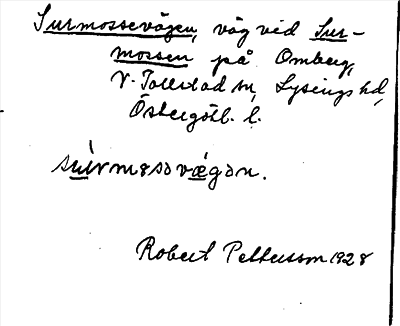 Surmossevägen, väg vid Sur-
mossen på Omberg,
V. Tollstad sn, Lysings hd,
Östergötl. l.
sùrmosovǽgən.
Robert Pettersson 1928